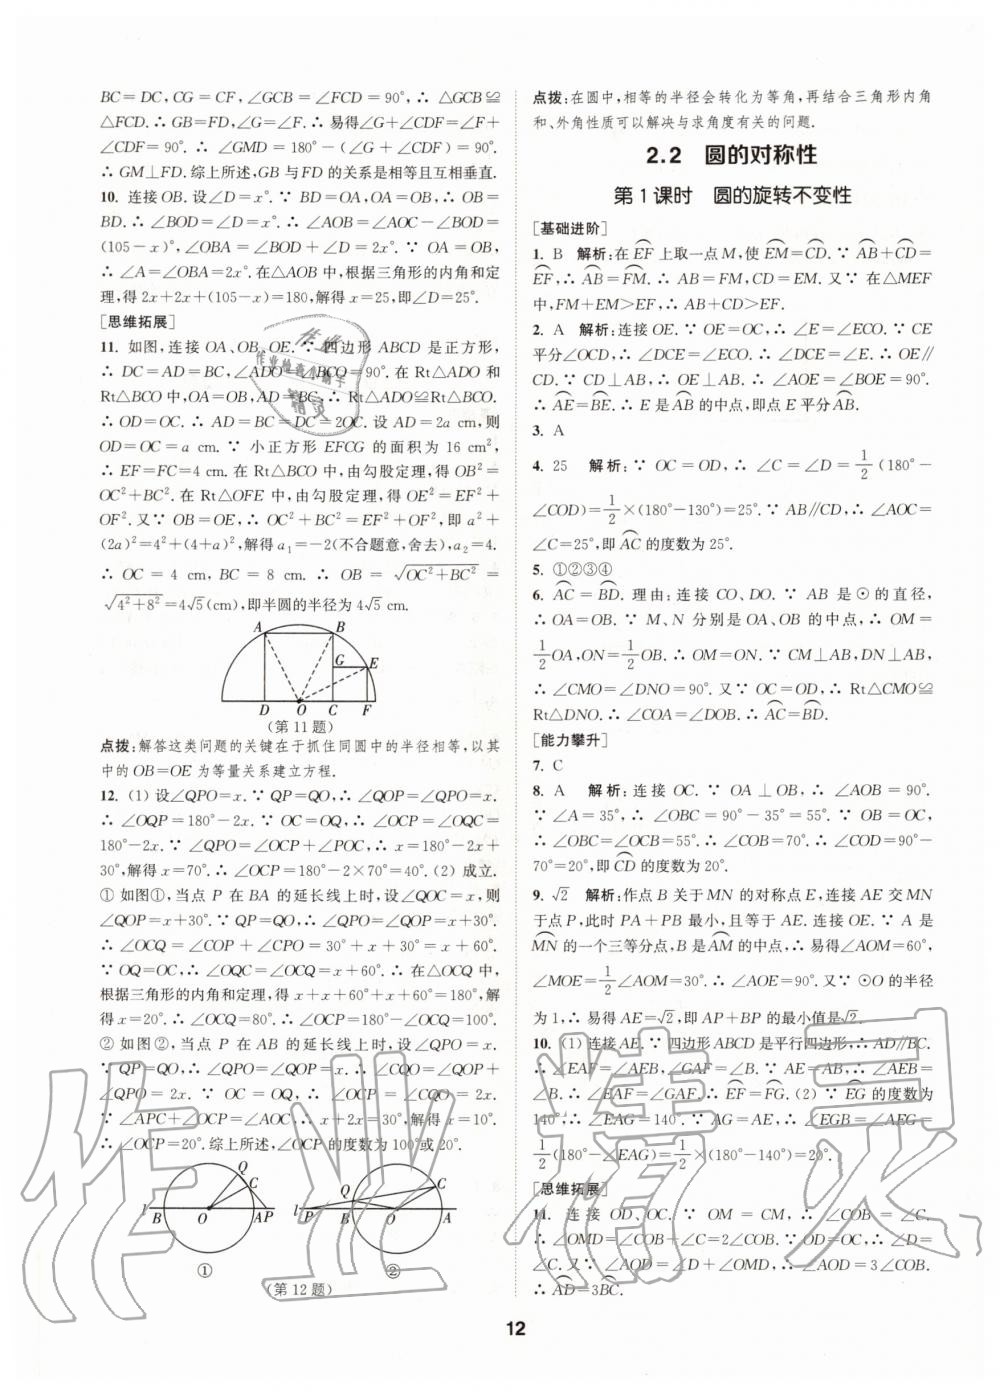 BC=DC,CG=CF,∠GCB=∠FCD=90°,∴ △GCB≌
△FCD.∴ GB=FD,∠G=∠F.∴ 易得∠G+∠CDF=∠F+
∠CDF=90°.∴ ∠GMD=180°-(∠G+∠CDF)=90°.
∴ GM⊥FD.综上所述,GB与FD的关系是相等且互相垂直.
10. 连接OB.设∠D=x°.∵ BD=OA,OA=OB,∴ OB=
BD.∴ ∠BOD=∠D=x°.∴ ∠AOB=∠AOC-∠BOD=
(105-x)°,∠OBA=∠BOD+∠D=2x°.∵ OA=OB,
∴ ∠A=∠OBA=2x°.在△AOB中,根据三角形的内角和定
理,得2x+2x+(105-x)=180,解得x=25,即∠D=25°.
[思维拓展]
11. 如图,连接OA、OB、OE.∵ 四边形ABCD是正方形,
∴ DC=AD=BC,∠ADO=∠BCO=90°.在Rt△ADO和
Rt△BCO中,OA=OB,AD=BC,∴ Rt△ADO≌Rt△BCO.
∴ OD=OC.∴ AD=BC=DC=2OC.设AD=2a cm,则
OD=OC=a cm.∵ 小正方形EFCG的面积为16 cm²,
∴ EF=FC=4 cm.在Rt△BCO中,由勾股定理,得OB²=
OC²+BC².在Rt△OFE中,由勾股定理,得OE²=EF²+
OF².又∵ OB=OE,∴ OC²+BC²=EF²+OF²,即a²+
(2a)²=4²+(4+a)²,解得a₁=-2(不合题意,舍去),a₂=4.
∴ OC=4 cm,BC=8 cm.∴ OB=√(OC²+BC²)=
√(4²+8²)=4√5(cm),即半圆的半径为4√5 cm.
A B
G E
D O C F
(第11题)
点拨:解答这类问题的关键在于抓住同圆中的半径相等,以其
中的OB=OE为等量关系建立方程.
12. (1) 设∠QPO=x.∵ QP=QO,∴ ∠QOP=∠QPO=x.
∴ ∠OQP=180°-2x.∵ OC=OQ,∴ ∠OCP=∠OQC=
180°-2x.∵ ∠QPO+∠OCP=∠POC,∴ x=180°-2x+
30°,解得x=70°.∴ ∠OCP=180°-2×70°=40°.(2) 成立.
① 如图①,当点P在BA的延长线上时,设∠QOC=x,则
∠QOP=x+30°.∵ QP=QO,∴ ∠QPO=∠QOP=x+30°.
∴ ∠OCQ=∠COP+∠CPO=30°+x+30°=x+60°.
∵ OQ=OC,∴ ∠OQC=∠OCQ=x+60°.∴ 在△OCQ中,
根据三角形的内角和定理,得x+x+60°+x+60°=180°,解
得x=20°.∴ ∠OCQ=80°.∴ ∠OCP=180°-∠OCQ=100°.
② 如图②,当点P在AB的延长线上时,设∠QPO=x.
∵ QP=QO,∴ ∠QOP=x.∴ ∠CQO=∠QPO+
∠QPO=2x.∵ OC=OQ,∴ ∠OCP=∠CQO=2x.
∵ ∠APC+∠OCP=∠AOC,∴ x+2x=30°,解得x=10°.
∴ ∠OCP=20°.综上所述,∠OCP的度数为100°或20°.
Q C l B O AP
①
l P Q B O A C
②
(第12题)
点拨:在圆中,相等的半径会转化为等角,再结合三角形内角
和、外角性质可以解决与求角度有关的问题.
2.2 圆的对称性
第1课时 圆的旋转不变性
[基础进阶]
1. B 解析:在⌒EF上取一点M,使⌒EM=⌒CD.∵ ⌒AB+⌒CD=
⌒EF,∴ ⌒AB=⌒FM.∴ AB=FM,CD=EM.又∵ 在△MEF
中,FM+EM>EF,∴ AB+CD>EF.
2. A 解析:连接OE.∵ OE=OC,∴ ∠E=∠ECO.∵ CE
平分∠OCD,∴ ∠DCE=∠ECO.∴ ∠DCE=∠E.∴ OE∥
CD.∵ CD⊥AB,∴ OE⊥AB.∴ ∠AOE=∠BOE=90°.
∴ ⌒AE=⌒BE.∴ E是⌒AB的中点,即点E平分⌒AB.
3. A
4. 25 解析:∵ OC=OD,∴ ∠C=∠D=1/2(180°-
∠COD)=1/2×(180°-130°)=25°.∵ AB∥CD,∴ ∠AOC=
∠C=25°,即⌒AC的度数为25°.
5. ①②③④
6. ⌒AC=⌒BD.理由:连接CO、DO.∵ AB是⊙的直径,
∴ OA=OB.∵ M、N分别是OA、OB的中点,∴ OM=
1/2OA,ON=1/2OB.∴ OM=ON.∵ CM⊥AB,DN⊥AB,
∴ ∠CMO=∠DNO=90°.又∵ OC=OD,∴ Rt△CMO≌
Rt△DNO.∴ ∠COA=∠DOB.∴ ⌒AC=⌒BD.
[能力攀升]
7. C
8. A 解析:连接OC.∵ OA⊥OB,∴ ∠AOB=90°.
∵ ∠A=35°,∴ ∠OBC=90°-35°=55°.∵ OB=OC,
∴ ∠OBC=∠OCB=55°.∴ ∠COB=70°.∴ ∠COD=90°-
70°=20°,即⌒CD的度数为20°.
9. √2 解析:作点B关于MN的对称点E,连接AE交MN
于点P,此时PA+PB最小,且等于AE.连接OE.∵ A是
⌒MN的一个三等分点,B是⌒AM的中点,∴ 易得∠AOM=60°,
∠MOE=1/2∠AOM=30°.∴ ∠AOE=90°.又∵ ⊙O的半径
为1,∴ 易得AE=√2,即AP+BP的最小值是√2.
10. (1) 连接AE.∵ 四边形ABCD是平行四边形,∴ AD∥BC.
∴ ∠EAF=∠AEB,∠GAF=∠B.∵ AB=AE,∴ ∠AEB=
∠B.∴ ∠EAF=∠GAF.∴ ⌒EF=⌒FG.(2) ∵ ⌒EG的度数为
140°,∴ ∠EAG=140°.∵ AG=AE,∴ ∠EGB=∠AEG=
1/2(180°-∠EAG)=1/2×(180°-140°)=20°.
[思维拓展]
11. 连接OD、OC.∵ OM=CM,∴ ∠COB=∠C.
∴ ∠OMD=∠COB+∠C=2∠C.∵ OD=OC,∴ ∠D=
∠C.又∵ ∠AOD=∠D+∠OMD,∴ ∠AOD=3∠COB.
∴ ⌒AD=3⌒BC.
12
作业精灵